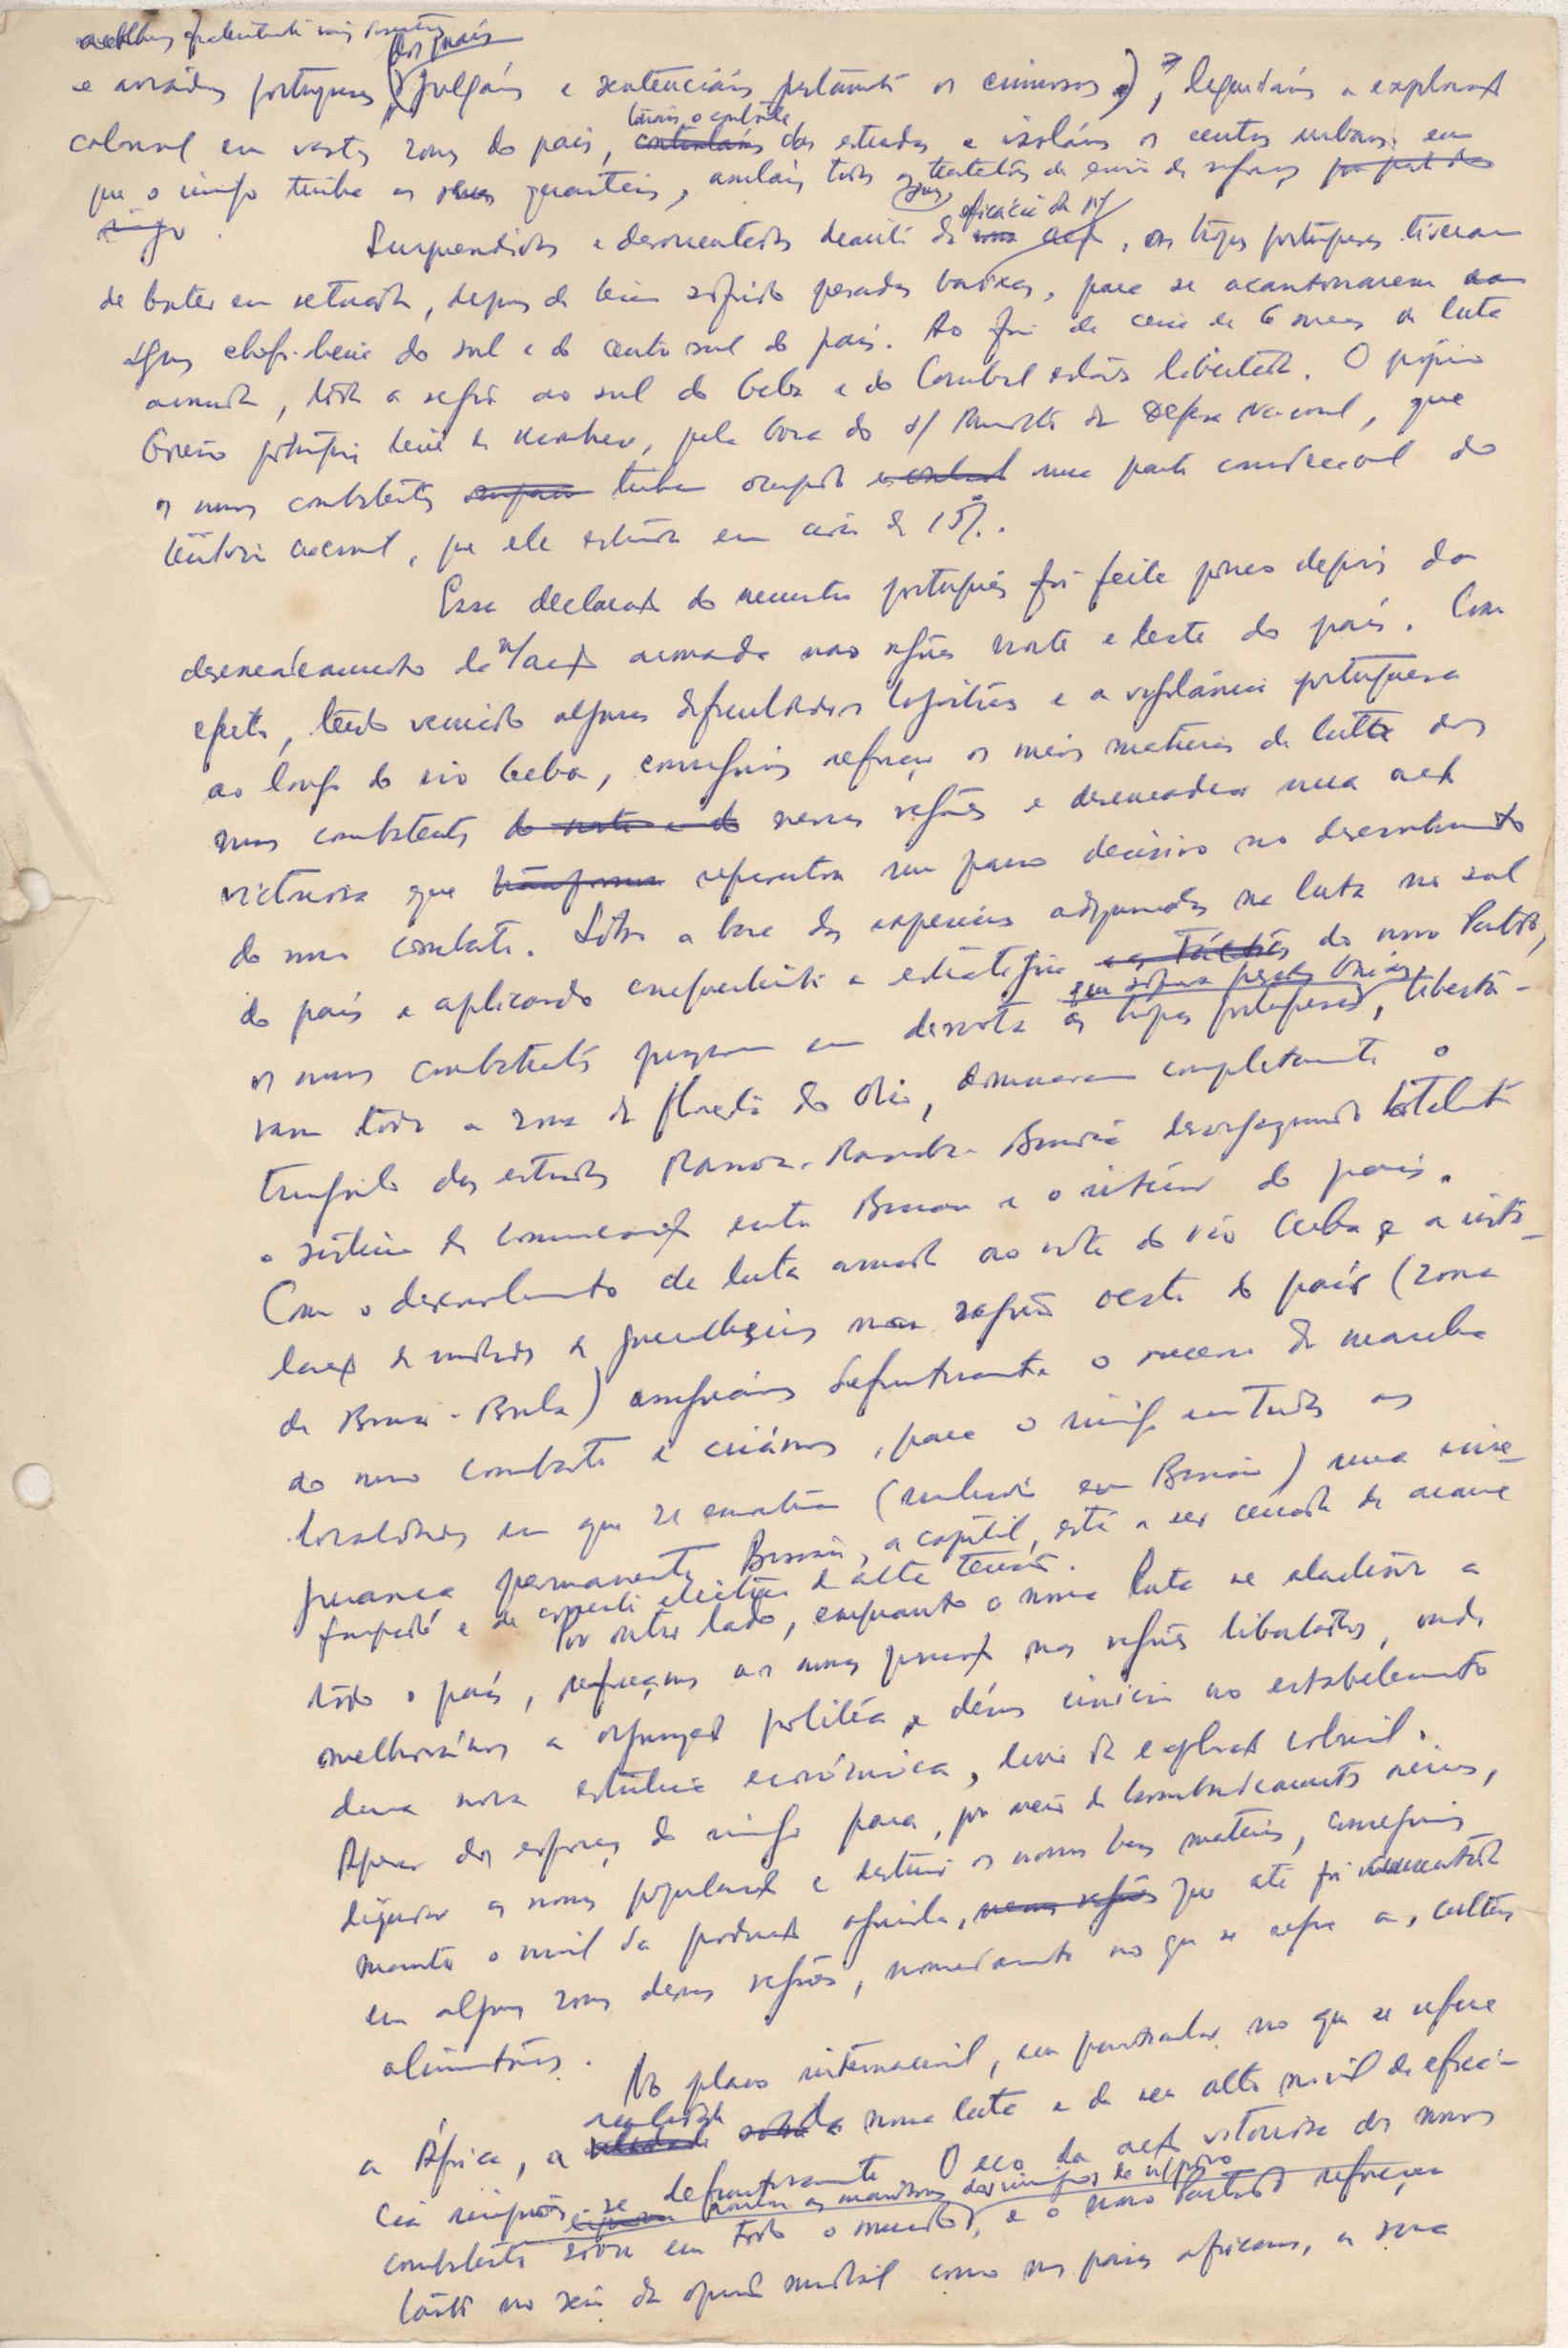 dos quais
e armados portugueses julgámos e sentenciámos os criminosos, liquidámos a exploração
colonial em vastas zonas do país, das estradas e isolámos os centros urbanos em
que o inimigo tinha os seus quarteis, anulámos todas as tentativas de envio de reforços
Surpreendidas e desorientadas diante da eficácia da n/ acção, as tropas portuguesas tiveram
de bater em retirada, depois de terem sofrido pesadas baixas, para se acantonarem
do sul e do centro sul do país. Ao fim de cerca de 6 meses de luta
armada, toda a região ao sul do Geba e do Corubal estava libertada. O próprio
Governo português teve de reconhecer, pela boca do s/ Ministro da Defesa Nacional, que
os nossos combatentes tinham ocupado uma parte considerável do
território nacional, que ele estimou em cerca de 15%.
Essa declaração do ministro português foi feita pouco depois do
desencadeamento da n/ acção armada nas regiões norte e leste do país. Com
efeito, tendo vencido algumas dificuldades logísticas e a vigilância portuguesa
ao longo do rio Geba, conseguimos reforçar os meios materiais de luta dos
nossos combatentes do norte e do nessas regiões e desencadear uma acção
victoriosa que representou um passo decisivo no desenvolvimento
do nosso combate. Sobre a base das experiências adquiridas na luta no sul
do país e aplicando a estratégia e as tácticas do nosso Partido,
os nossos combatentes puseram em derrota as tropas portuguesas, liberta-
ram toda a zona da floresta do Oio, dominaram completamente o
triângulo das estradas Mansoa-Mansaba-Bissorã desorganizando totalmente
o sistema de comunicação entre Bissau e o interior do país.
Com o desenvolvimento da luta armada ao norte do rio Geba e a insta-
lação de unidades de guerrilheiros na região oeste do país (zona
de Bissau-Bula) assegurámos definitivamente o sucesso da marcha
do nosso combate e criámos, para o inimigo em todas as
localidades em que se encontra (inclusivé em Bissau) uma inse-
gurança permanente. Bissau, a capital, está a ser cercada de arame
farpado e de corrente eléctrica de alta tensão.
Por outro lado, enquanto a nossa luta se alastrava a
todo o país, reforçámos as nossas posições nas regiões libertadas, onde
melhorámos a organização política e démos início ao estabelecimento
duma nova estrutura económica, livre da exploração colonial.
Apesar dos esforços do inimigo para, por meio de bombardeamentos aéreos,
liquidar as nossas populações e destruir os nossos bens materiais, conseguimos
manter o nível da produção agrícola, nessas regiões que até foi aumentada
em algumas zonas dessas regiões, nomeadamente no que se refere às culturas
alimentares.
No plano internacional, em particular no que se refere
a África, a realidade da nossa luta e do seu alto nível de eficá-
cia impôs-se definitivamente. O eco da acção vitoriosa dos nossos
combatentes soou em todo o mundo, e o nosso Partido reforçou
tanto no seio da opinião mundial como nos países africanos, a sua